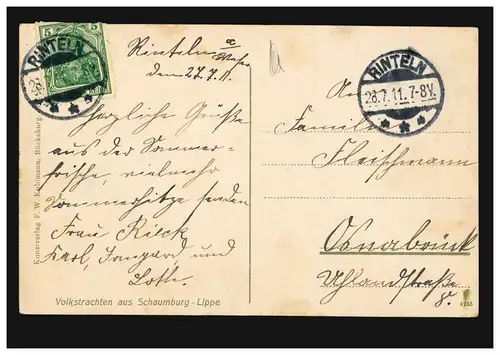 5
RINTELN
RINTELN
28.7.11.7-8V.
Rinteln a
Weser
den 27.7.11.
Herzliche Grüße
aus der Sommer-
frische, vielmehr
Sommerhitze senden
Frau Rieck
Karl, Irmgard und
Lotte.
An
Familie
Fleischmann
Osnabrück
Uhlandstraße
8.
Volkstrachten aus Schaumburg-Lippe
Kunstverlag F. W. Kuhlmann, Bückeburg.